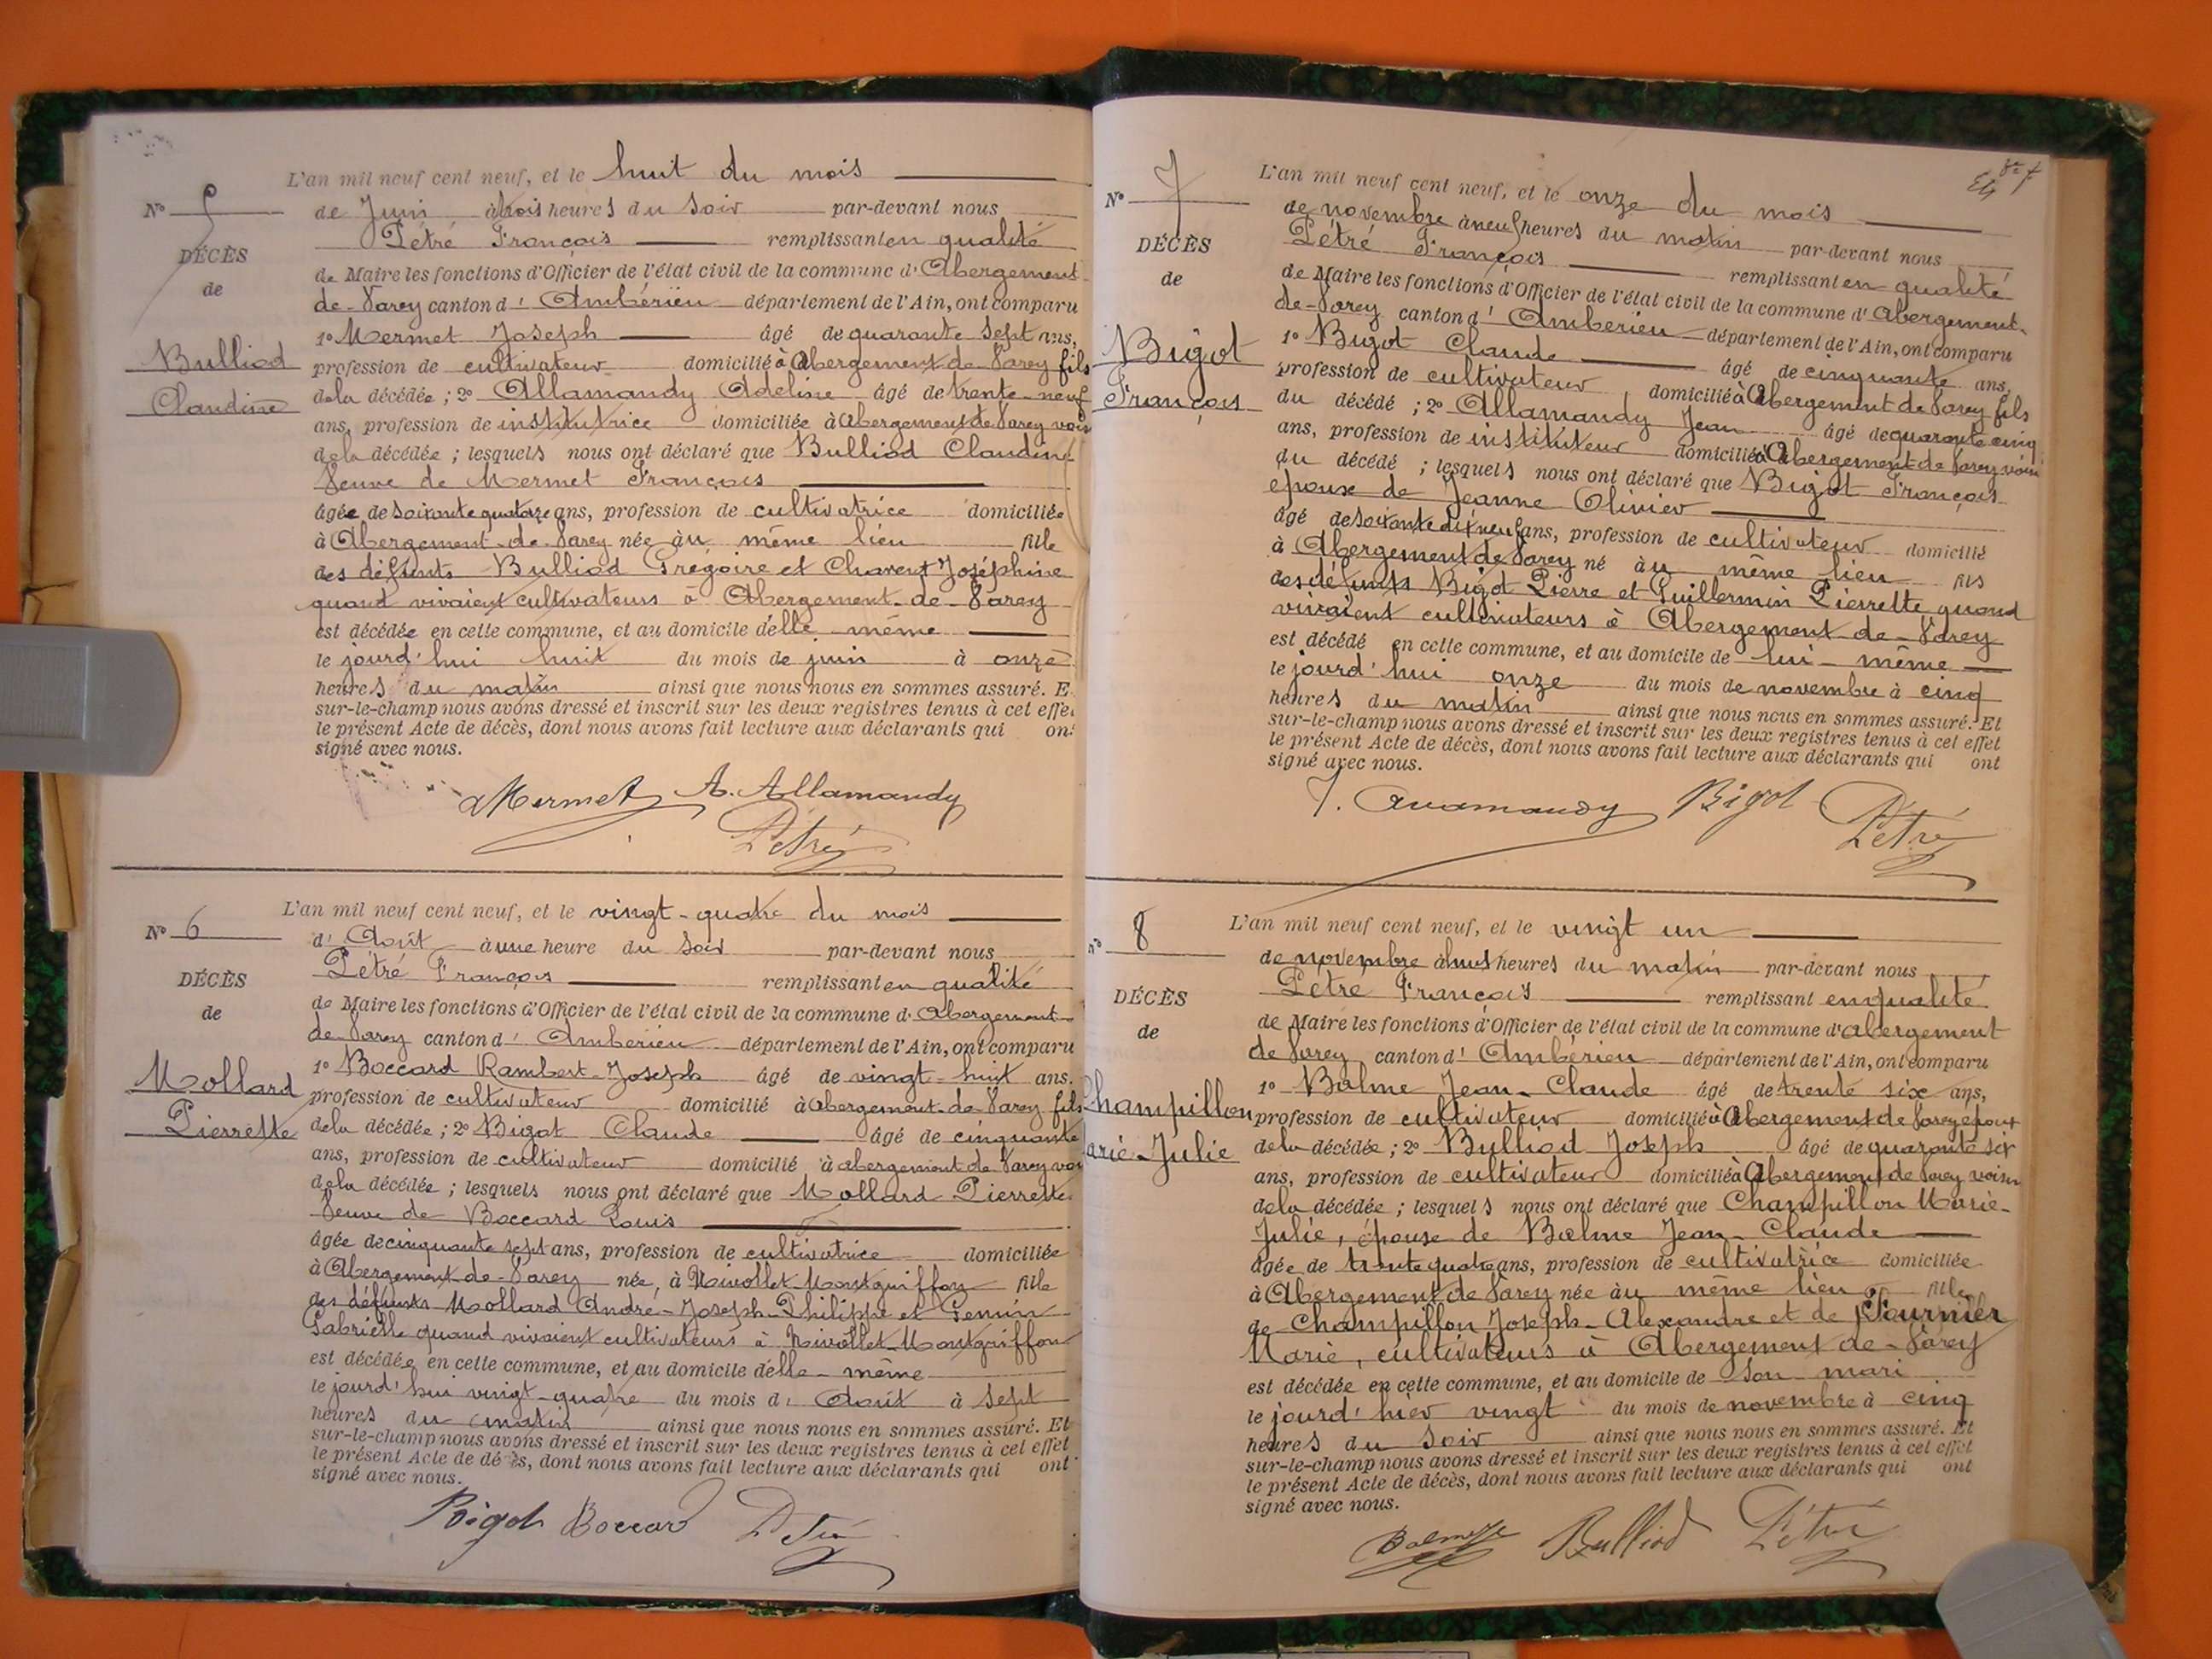 L'an mil neuf cent neuf, et le huit du mois
N° 5
de Juin à trois heures du soir par-devant nous
Pétré François remplissant en qualité
DÉCÈS
de
de Maire les fonctions d'Officier de l'état civil de la commune d'Abergement-
de-Varey canton d'Ambérieu département de l'Ain, ont comparu
1° Mermet Joseph âgé de quarante sept ans,
Bulliod
profession de cultivateur domicilié à Abergement de Varey fils
Claudine
de la décédée ; 2° Allamandy Adeline âgé de trente-neuf
ans, profession de institutrice domiciliée à Abergement de Varey vois
de la décédée ; lesquels nous ont déclaré que Bulliod Claudine
Veuve de Mermet François
âgée de soixante quatorze ans, profession de cultivatrice domiciliée
à Abergement-de-Varey née au même lieu fille
des défunts Bulliod Grégoire et Charent Joséphine
quand vivaient cultivateurs à Abergement-de-Varey
est décédée en cette commune, et au domicile d'elle même
le jourd'hui huit du mois de juin à onze
heures du matin ainsi que nous nous en sommes assuré. E
sur-le-champ nous avons dressé et inscrit sur les deux registres tenus à cet effe
le présent Acte de décès, dont nous avons fait lecture aux déclarants qui on
signé avec nous.
Mermet A. Allamandy
Pétré
L'an mil neuf cent neuf, et le vingt-quatre du mois
N° 6
d'Août à une heure du soir par-devant nous
Pétré François remplissant en qualité
DÉCÈS
de
de Maire les fonctions d'Officier de l'état civil de la commune d'Abergement-
de-Varey canton d'Ambérieu département de l'Ain, ont comparu
1° Boccard Rambert-Joseph âgé de vingt-huit ans.
Mollard
profession de cultivateur domicilié à Abergement-de-Varey fils
Pierrette
de la décédée ; 2° Bigot Claude âgé de cinquante
ans, profession de cultivateur domicilié à abergement-de-Varey voi
de la décédée ; lesquels nous ont déclaré que Mollard Pierrette
Veuve de Boccard Louis
âgée de cinquante sept ans, profession de cultivatrice domiciliée
à Abergement-de-Varey née, à Nivollet-Montgriffon fille
des défunts Mollard André-Joseph-Philippe et Genin
Gabrielle quand vivaient cultivateurs à Nivollet-Montgriffon
est décédée en cette commune, et au domicile d'elle-même
le jourd'hui vingt-quatre du mois d'Août à sept
heures du matin ainsi que nous nous en sommes assuré. Et
sur-le-champ nous avons dressé et inscrit sur les deux registres tenus à cet effet
le présent Acte de décès, dont nous avons fait lecture aux déclarants qui ont
signé avec nous.
Bigot Boccard Pétré
L'an mil neuf cent neuf, et le onze du mois
N° 7
de novembre à neuf heures du matin par-devant nous
Pétré François remplissant en qualité
DÉCÈS
de
de Maire les fonctions d'Officier de l'état civil de la commune d'Abergement-
de-Varey canton d'Ambérieu département de l'Ain, ont comparu
1° Bigot Claude âgé de cinquante ans,
Bigot
profession de cultivateur domicilié à Abergement de Varey fils
François
du décédé ; 2° Allamandy Jean âgé de quarante cinq
ans, profession de instituteur domicilié à Abergement de Varey voisin
du décédé ; lesquels nous ont déclaré que Bigot François
époux de Jeanne Olivier
âgé de soixante dix neuf ans, profession de cultivateur domicilié
à Abergement de Varey né au même lieu fils
des défunts Bigot Pierre et Guillermin Pierrette quand
vivaient cultivateurs à Abergement-de-Varey
est décédé en cette commune, et au domicile de lui-même
le jourd'hui onze du mois de novembre à cinq
heures du matin ainsi que nous nous en sommes assuré. Et
sur-le-champ nous avons dressé et inscrit sur les deux registres tenus à cet effet
le présent Acte de décès, dont nous avons fait lecture aux déclarants qui ont
signé avec nous.
J. Allamandy Bigot Pétré
L'an mil neuf cent neuf, et le vingt un
N° 8
de novembre à huit heures du matin par-devant nous
Pétré François remplissant en qualité
DÉCÈS
de
de Maire les fonctions d'Officier de l'état civil de la commune d'abergement
de Varey canton d'Ambérieu département de l'Ain, ont comparu
1° Balme Jean-Claude âgé de trente six ans,
Champillon
profession de cultivateur domicilié à Abergement de Varey époux
arie-Julie
de la décédée ; 2° Bulliod Joseph âgé de quarante six
ans, profession de cultivateur domicilié à Abergement de Varey voisin
de la décédée ; lesquels nous ont déclaré que Champillon Marie-
Julie, épouse de Balme Jean-Claude
âgée de trente quatre ans, profession de cultivatrice domiciliée
à Abergement de Varey née au même lieu fille
de Champillon Joseph-Alexandre et de Fournier
Marie, cultivateurs à Abergement de-Varey
est décédée en cette commune, et au domicile de son mari
le jourd'hier vingt du mois de novembre à cinq
heures du soir ainsi que nous nous en sommes assuré. Et
sur-le-champ nous avons dressé et inscrit sur les deux registres tenus à cet effet
le présent Acte de décès, dont nous avons fait lecture aux déclarants qui ont
signé avec nous.
Balme Bulliod Pétré